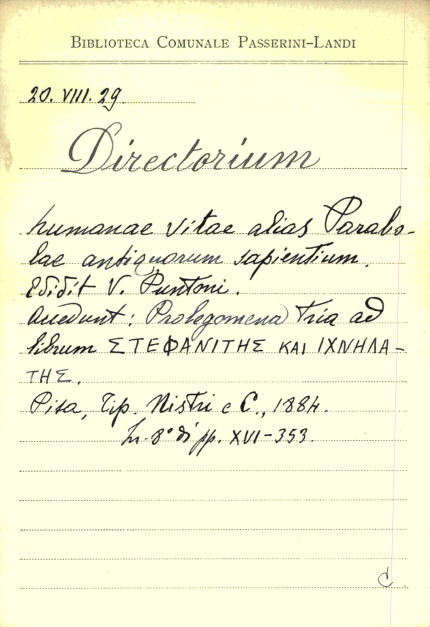 BIBLIOTECA COMUNALE PASSERINI-LANDI
20. VIII. 29.
Directorium
humanae vitae alias Parabo-
lae antiquorum sapientium.
Edidit V. Puntoni.
Accedunt: Prolegomena tria ad
librum ΣΤΕΦΑΝΙΤΗΣ ΚΑΙ ΙΧΝΗΛΑ-
ΤΗΣ.
Pisa, Tip. Nistri e C., 1884.
In-8° di pp. XVI-353.
C